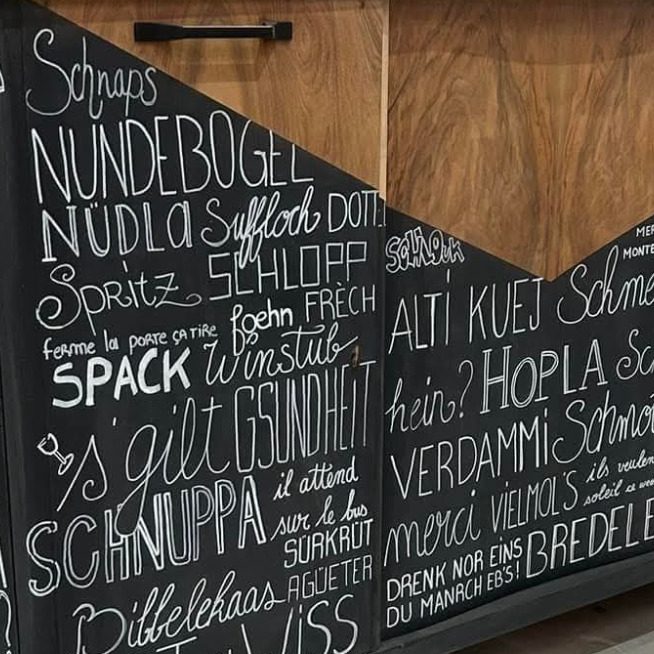 Schnaps
NUNDEBOGEL
NÜDLA Suffloch DOTT
Spritz SCHLOPP
ferme la porte ça tire foehn FRÈCH
SPACK Winstub
's gilt GSUNDHEIT
SCHNUPPA il attend
sur le bus
SÜRKRÜT
Bibbelekaas AGÜETER
ViSS
SCHLOUK
MER
MONTE
ALTI KUEJ Schme
hein? HOPLA Sc
VERDAMMi Schmo
merci VIELMOL'S ils veulen
soleil ce wee
DRENK NOR EINS BREDELE
DU MANRCH EB'S!